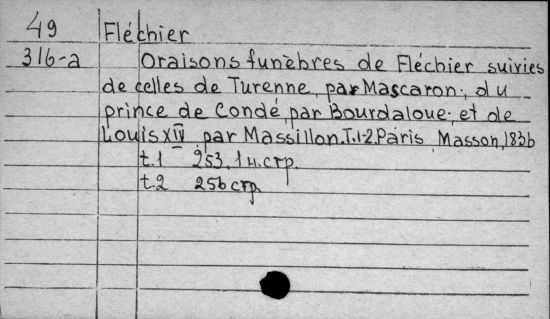 49 Fléchier
316-a Oraisons funèbres de Fléchier suivies
de celles de Turenne, par Mascaron; du
prince de Condé, par Bourdaloue; et de
Louis XIV par Massillon. T.1-2. Paris, Masson, 1836
t.1 253, 1 н. стр.
t.2 256 стр.